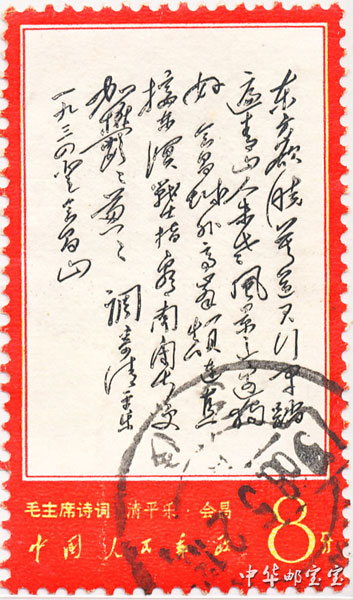 东方欲晓莫道君行早踏
遍青山人未老風景这边独
好会昌城外高峰颠连直
接东溟战士指看南粤更
加鬱鬱葱葱 调寄清平乐
一九三四登会昌山
毛主席诗词 清平乐·会昌
中国人民邮政
8分
中华邮宝宝